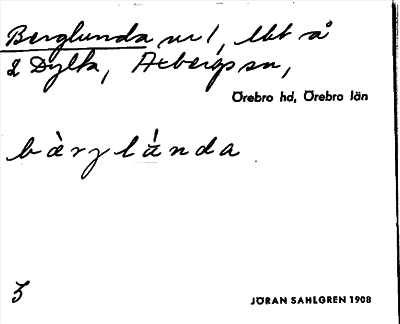 Berglunda nr 1, lht å
2 Dylta, Axbergs sn,
Örebro hd, Örebro län
bàrglánda
JÖRAN SAHLGREN 1908